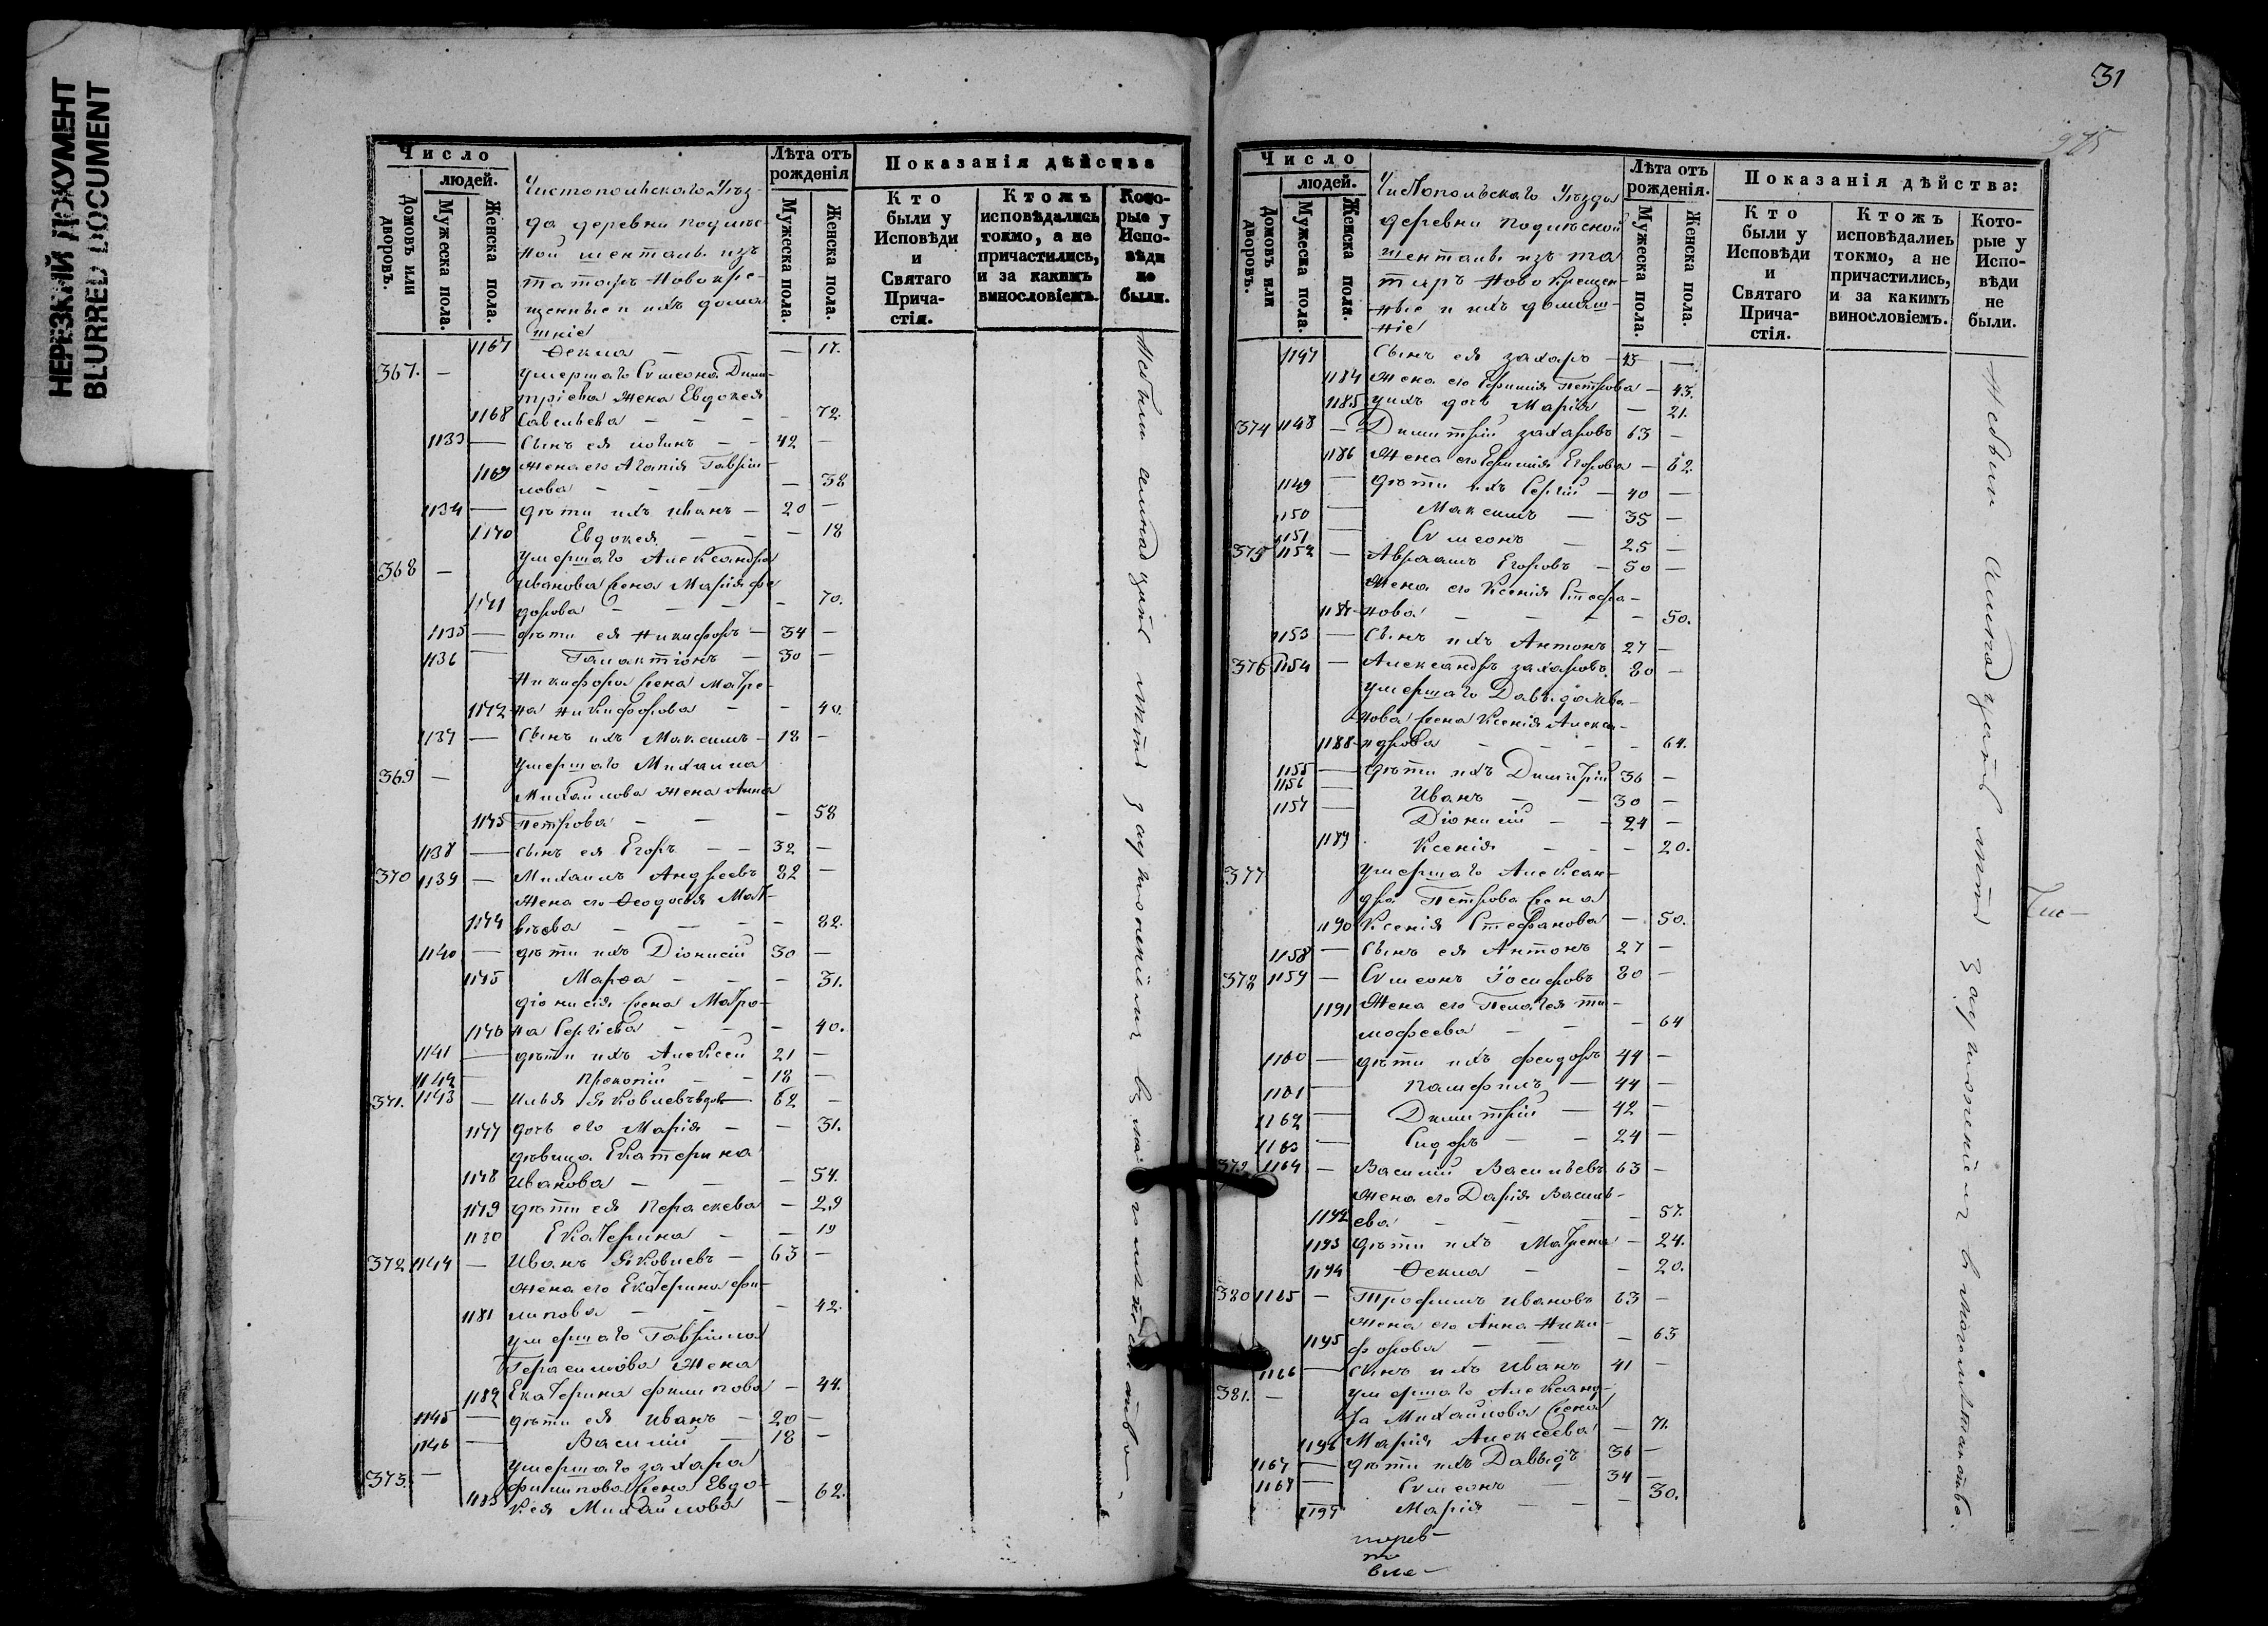 НЕРЕЗКИЙ ДОКУМЕНТ
BLURRED DOCUMENT
Число
людей.
Домовъ или дворовъ.
Мужеска пола.
Женска пола.
Чистопольскаго Уѣз-
да деревни Подлѣс-
ной Шентала изъ
татаръ Новокре-
щенные и ихъ дома
шніе
Лѣта отъ рожденія
Мужеска пола.
Женска пола.
Показанія дѣйства
Кто были у Исповѣди и Святаго Причастія.
Ктожъ исповѣдались токмо, а не причастились, и за какимъ винословіемъ.
Которые у Исповѣди не были.
1167 Ѳекла — — 17.
367. — умершаго Симеона Дими-
тріева жена Евдокея
1168 Савельева — — — 72.
1133 — Сынъ ея Логинъ — — 42 —
1169 жена его Агапія Гаврии-
лова — — — — 38
1134 — дѣти ихъ Иванъ — 20 —
1170 Евдокея — — — 18
368 — умершаго Александра
Иванова жена Марія Фе
1171 дорова — — — — 70.
1135 — дѣти ея Никифоръ — 34 —
1136 — Галактіонъ — 30 —
Никифора жена Матре-
1172 на Никифорова — — 40.
1137 — Сынъ ихъ Максимъ — 18 —
369 — умершаго Михаила
Михайлова жена Анна
1173 Петрова — — — 58
1138 — сынъ ея Егоръ — — 32 —
370 1139 — Михаилъ Андреевъ 82 —
жена его Ѳеодосья Мат-
1174 вѣева — — — — 82.
1140 — дѣти ихъ Діонисій 30 —
1175 Марѳа — — — 31.
Діонисія жена Матре-
1176 на Сергіева — — — 40.
1141 — дѣти ихъ Алексей 21 —
1142 — Прокопій — — 18 —
371. 1143 — Илья Яковлевъ вдов — 62 —
1177 дочь его Марія — — 31.
дѣвица Екатерина
1178 Иванова — — — 54.
1179 дѣти ея Параскева — 29
1180 Екатерина — — 19
372 1144 — Иванъ Яковлевъ — 63 —
жена его Екатерина Фи-
1181 липова — — — 42.
умершаго Гавріила
Герасимова жена
1182 Екатерина Филипова — 44.
1145 — дѣти ея Иванъ — 20 —
1146 — Василій — 18 —
373. — умершаго Захара
Филипова жена Евдо-
1183 кея Михайлова — 62.
Небыли семнадцать лѣтъ за уклоненіемъ въ магометанство.
31
975
Число
людей.
Домовъ или дворовъ.
Мужеска пола.
Женска пола.
Чистопольскаго Уѣзда
деревни Подлѣсной
Шентала изъ та
таръ Новокрещен-
ные и ихъ домаш-
ніе
Лѣта отъ рожденія.
Мужеска пола.
Женска пола.
Показанія дѣйства:
Кто были у Исповѣди и Святаго Причастія.
Ктожъ исповѣдались токмо, а не причастились, и за какимъ винословіемъ.
Которые у Исповѣди не были.
1147 Сынъ ея Захаръ — 43 —
1184 Жена его Ефимія Петрова — 43.
1185 у нихъ дочь Марія — 21.
374 1148 — Димитрій Захаровъ 63 —
1186 Жена его Ефимія Егорова — 62.
1149 — дѣти ихъ Сергій — 40 —
1150 — Максимъ — 35 —
1151 — Симеонъ — 25 —
375 1152 — Авраамъ Егоровъ — 50 —
Жена его Ксенія Стефа-
1187 нова — — — 50.
1153 — Сынъ ихъ Антонъ 27 —
376 1154 — Александръ Захаровъ 80 —
умершаго Давыда Ива-
нова жена Ксенія Алекса-
1188 ндрова — — — — 64.
1155 — дѣти ихъ Димитрій 36 —
1156 — Иванъ — — 30 —
1157 — Діонисій — — 24 —
1189 Ксенія — — — 20.
377 умершаго Алексан-
дра Петрова жена
1190 Ксенія Стефанова — 50.
1158 — Сынъ ея Антонъ 27 —
378 1159 — Симеонъ Іосифовъ 80 —
1191 Жена его Пелагея Ти-
мофеева — — — 64
1160 — дѣти ихъ Феодоръ 44 —
1161 — Памфилъ — 44 —
1162 — Димитрій — 42 —
1163 — Сидоръ — — 24 —
379 1164 — Василій Васильевъ 63 —
Жена его Дарія Василь-
1192 ева — — — — 57.
1193 дѣти ихъ Матрена — 24.
1194 Ѳекла — — 20.
380 1165 — Трофимъ Ивановъ 63 —
Жена его Анна Ники-
1195 форова — — — 63
1166 — сынъ ихъ Иванъ 41 —
381. — умершаго Александ-
ра Михайлова жена
1196 Марія Алексеева — 71.
1167 — дѣти ихъ Давыдъ 36 —
1168 — Симеонъ — 34 —
1197 Марія — — — 30.
Небыли семнадцать лѣтъ за уклоненіемъ въ магометанство.